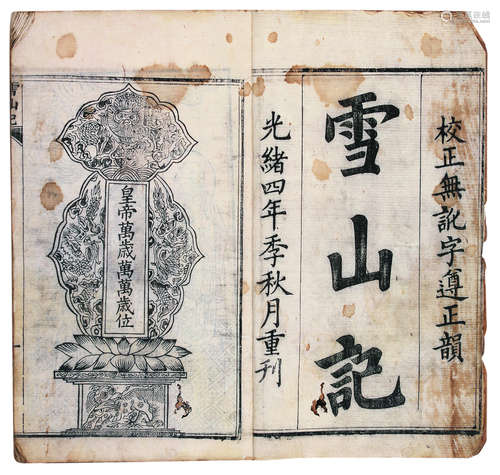 校正無訛字遵正韻
雪山記
光緒四年季秋月重刊
皇帝萬歲萬萬歲位